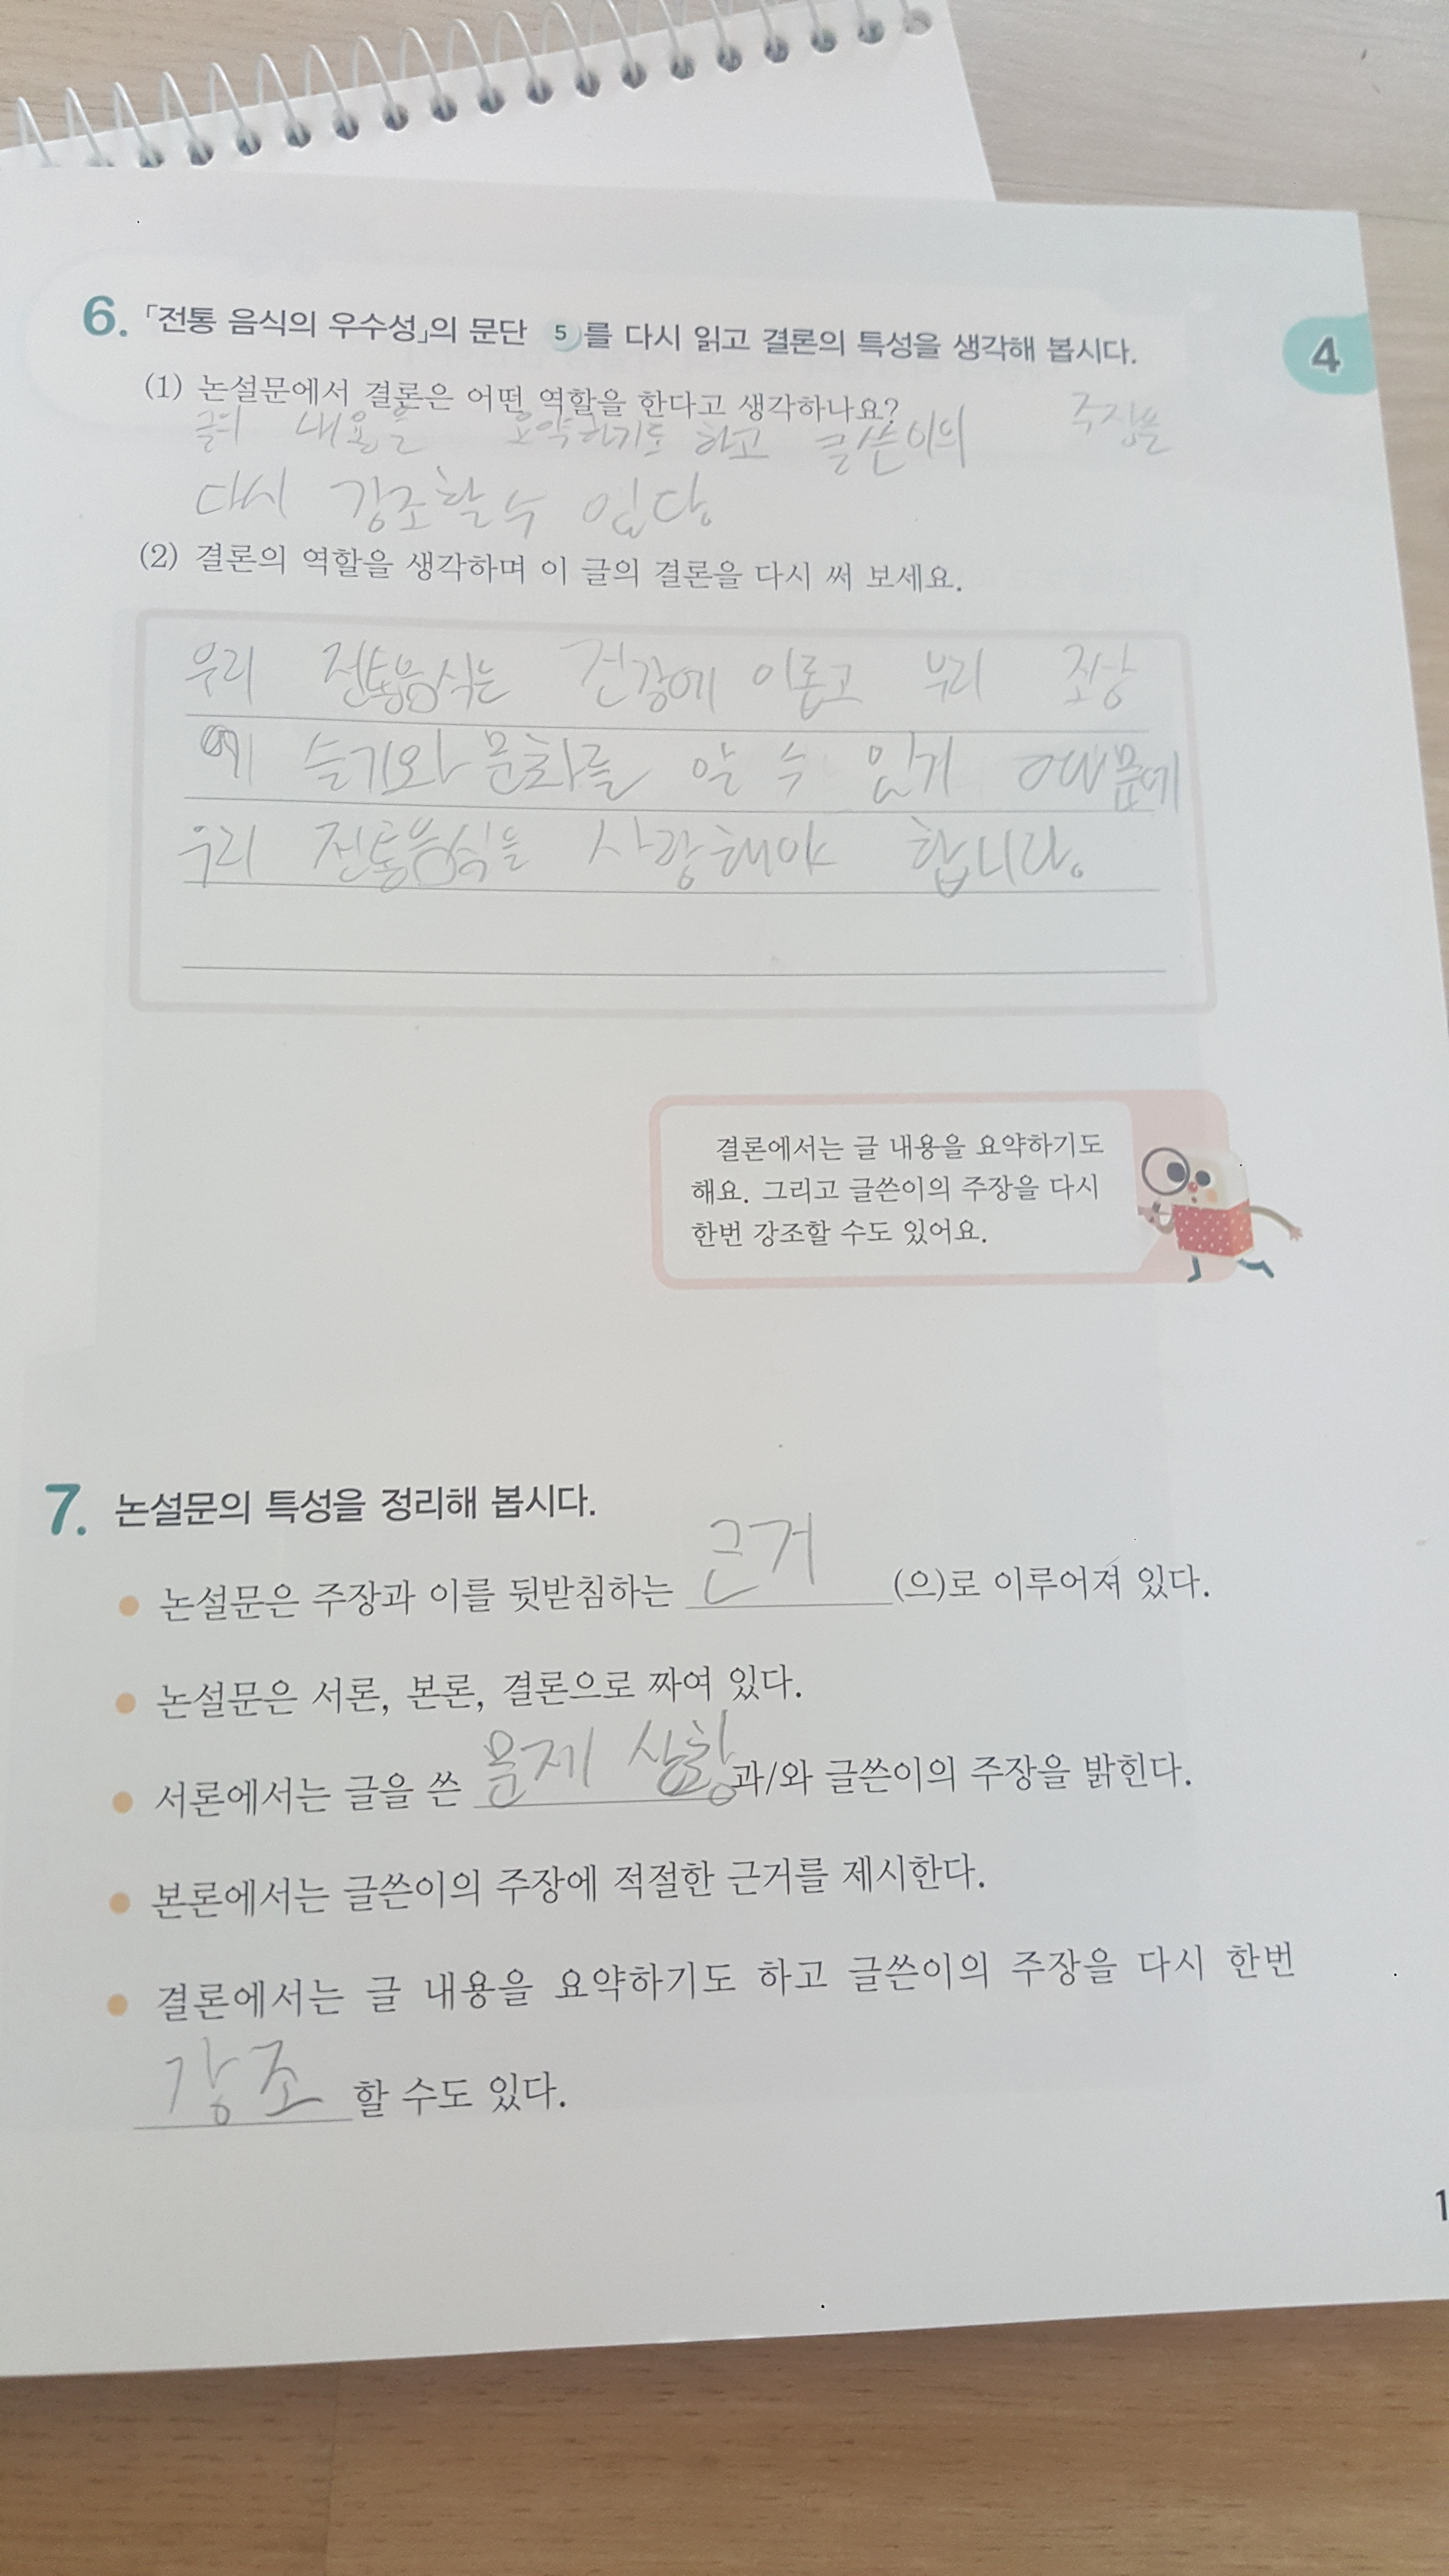 6. 「전통 음식의 우수성」의 문단 5 를 다시 읽고 결론의 특성을 생각해 봅시다.
4
(1) 논설문에서 결론은 어떤 역할을 한다고 생각하나요?
내용을 요약하기도 하고 글쓴이의 주장을
다시 강조할 수 있다.
(2) 결론의 역할을 생각하며 이 글의 결론을 다시 써 보세요.
우리 전통음식는 건강에 이롭고 우리 조상
에 슬기와 문화를 알 수 있기 때문에
우리 전통음식을 사랑해야 합니다.
결론에서는 글 내용을 요약하기도
해요. 그리고 글쓴이의 주장을 다시
한번 강조할 수도 있어요.
7. 논설문의 특성을 정리해 봅시다.
논설문은 주장과 이를 뒷받침하는 근거 (으)로 이루어져 있다.
논설문은 서론, 본론, 결론으로 짜여 있다.
서론에서는 글을 쓴 문제 상황 과/와 글쓴이의 주장을 밝힌다.
본론에서는 글쓴이의 주장에 적절한 근거를 제시한다.
결론에서는 글 내용을 요약하기도 하고 글쓴이의 주장을 다시 한번
강조 할 수도 있다.